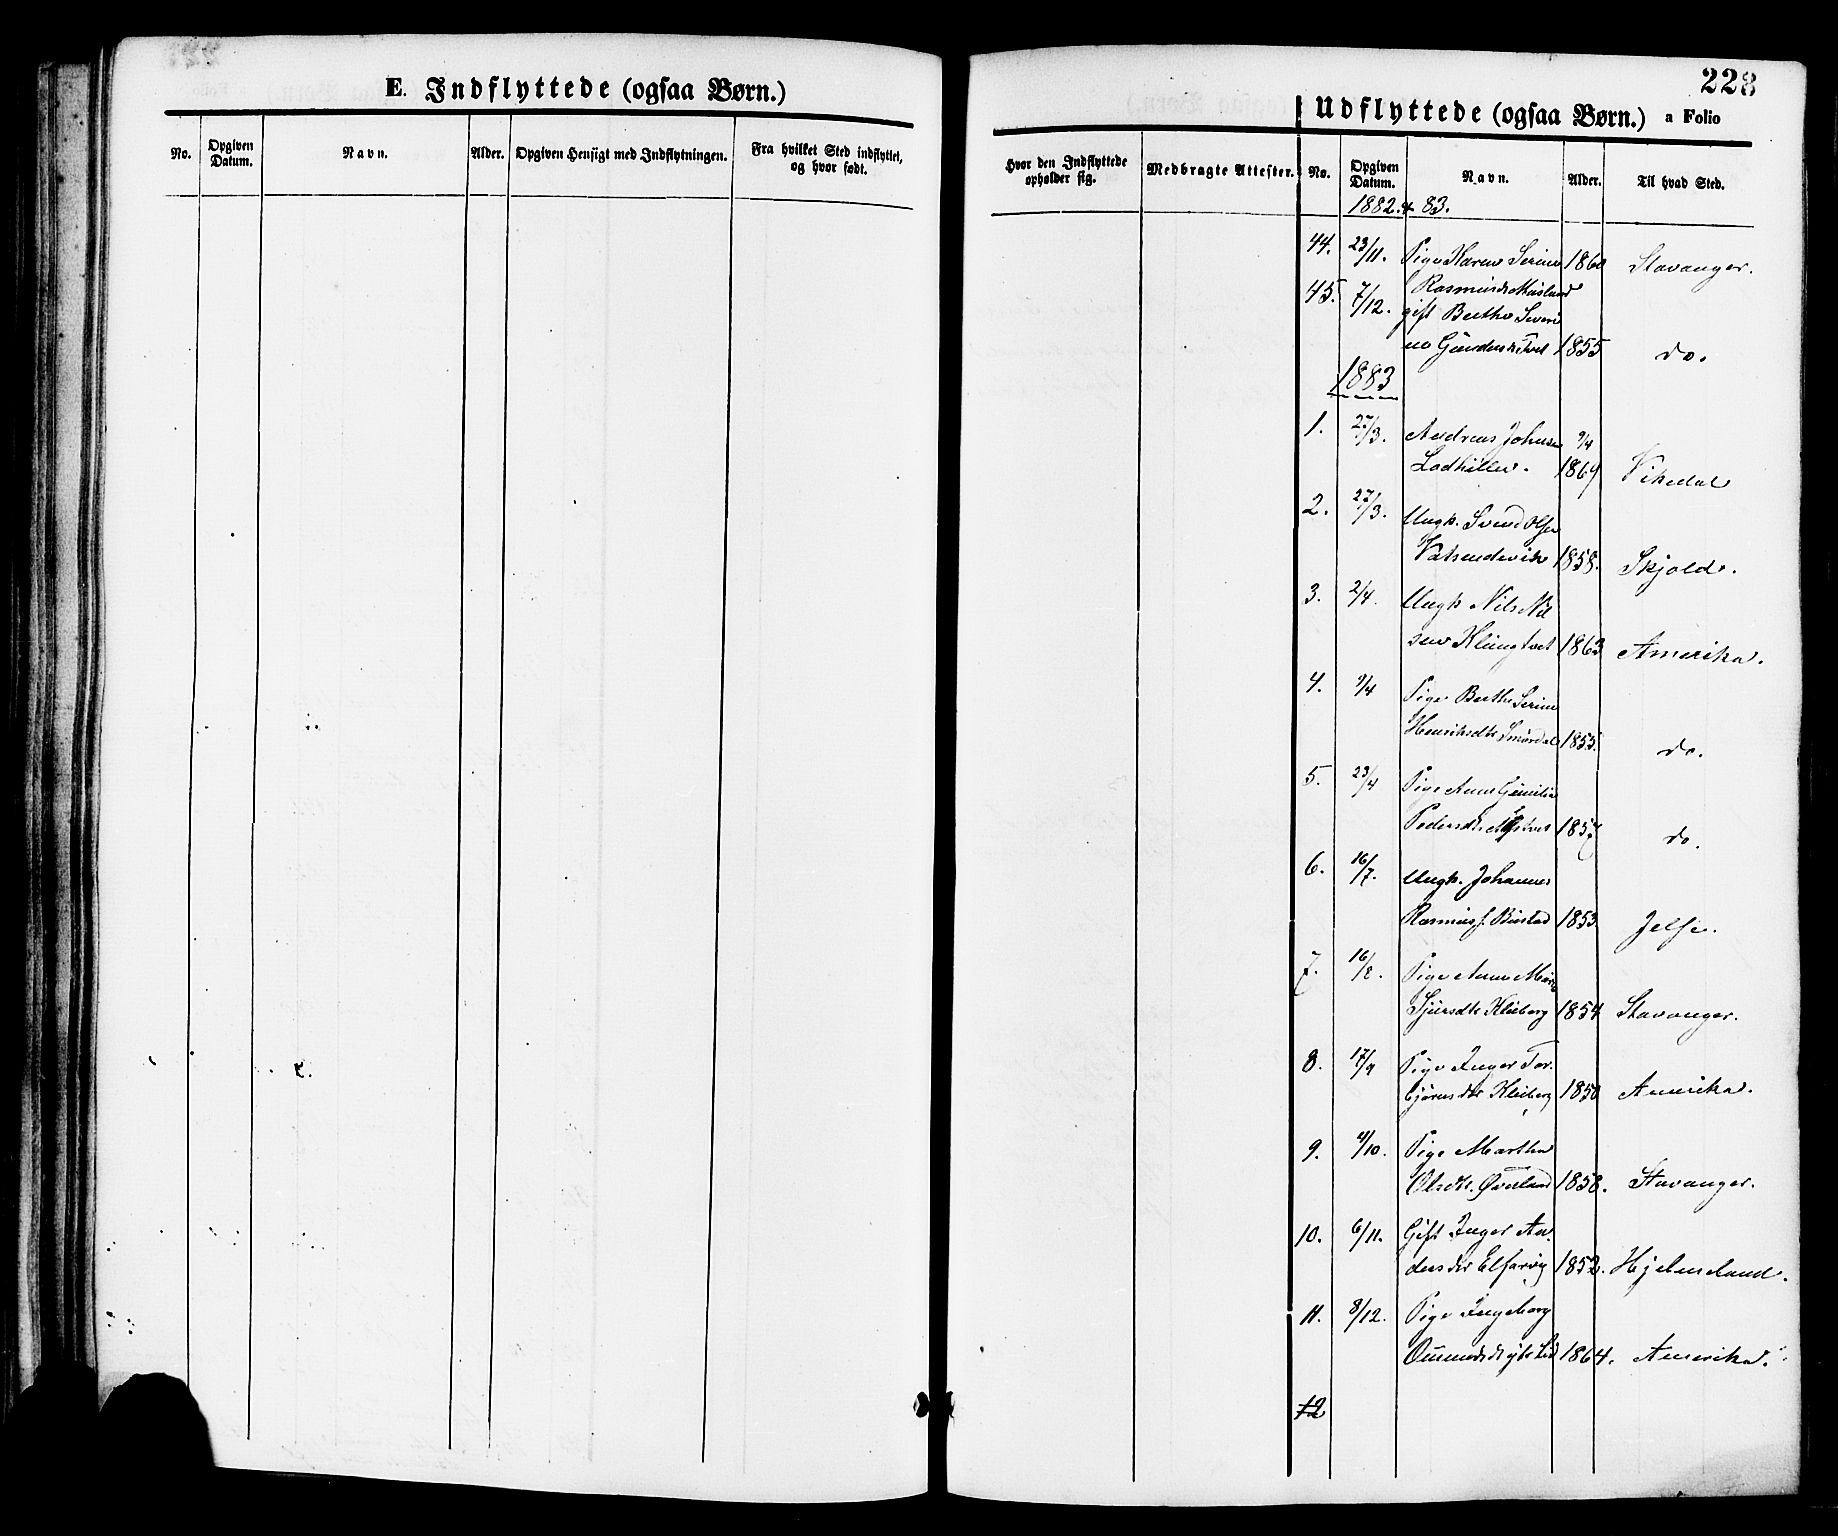 E. Indflyttede (ogsaa Børn.)
No. Opgiven Datum. Navn. Alder. Opgiven Hensigt med Indflytningen. Fra hvilket Sted indflyttet, og hvor født.
228
Udflyttede (ogsaa Børn.) a Folio
Hvor den Indflyttede opholder sig. Medbragte Attester. No. Opgiven Datum. Navn. Alder. Til hvad Sted.
1882 & 83.
44. 23/11. Pige Karen Serine 1860 Stavanger.
Rasmusdr
45. 7/12. gift Berthe Severi
ne Gundersdr Tvet 1855 do.
1883
1. 27/3. Andreas Johnsen 9/4
1869 Vikedal
2. 27/3. Ungk. Svend Olsen
Vatsendevik 1858. Skjold.
3. 2/4. Ungk Nils Niel
sen Klungtvet 1863 Amerika.
4. 9/4 Pige Berthe Serine
Henriksdtr 1855. do.
5. 23/4 Pige Anne
Pedersdtr 1857 do.
6. 16/7. Ungk. Johannes
Rasmus s. Bustad 1853 Jelse.
7. 16/8. Pige Anne Marie
Sjursdtr Kleiberg 1854 Stavanger.
8. 17/9 Pige Inger Tor
bjørnsdtr Kleiberg 1850 Amerika.
9. 4/10. Pige Martha
Olsdtr. Øverland 1858. Stavanger.
10. 6/11. Gift Inger An
dersdtr Elfarvig 1852. Hjelmeland.
11. 8/12. Pige Ingeborg
Lid 1864. Amerika.
12